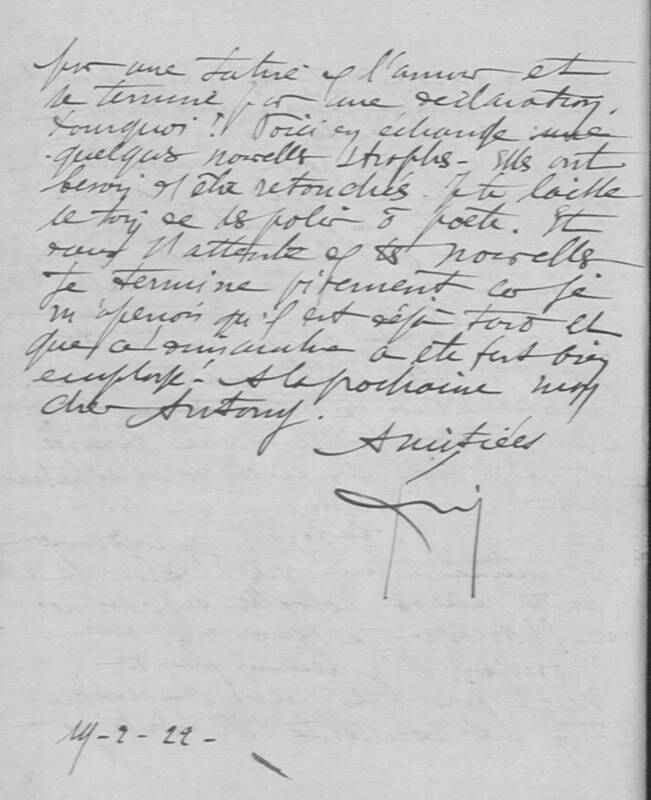 par une satire de l'amour et
se termine par une déclaration.
Pourquoi? Voici en échange une
quelques nouvelles strophes - Elles ont
besoin d'être retouchées. Je te laisse
le soin de les polir ô poète. Et
dans l'attente de tes nouvelles
Je termine vitement car je
m'aperçois qu'il est déjà tard et
que ce dimanche a été fort bien
employé. - A la prochaine mon
cher Antony.
Amitiées
19 - 2 - 22 -